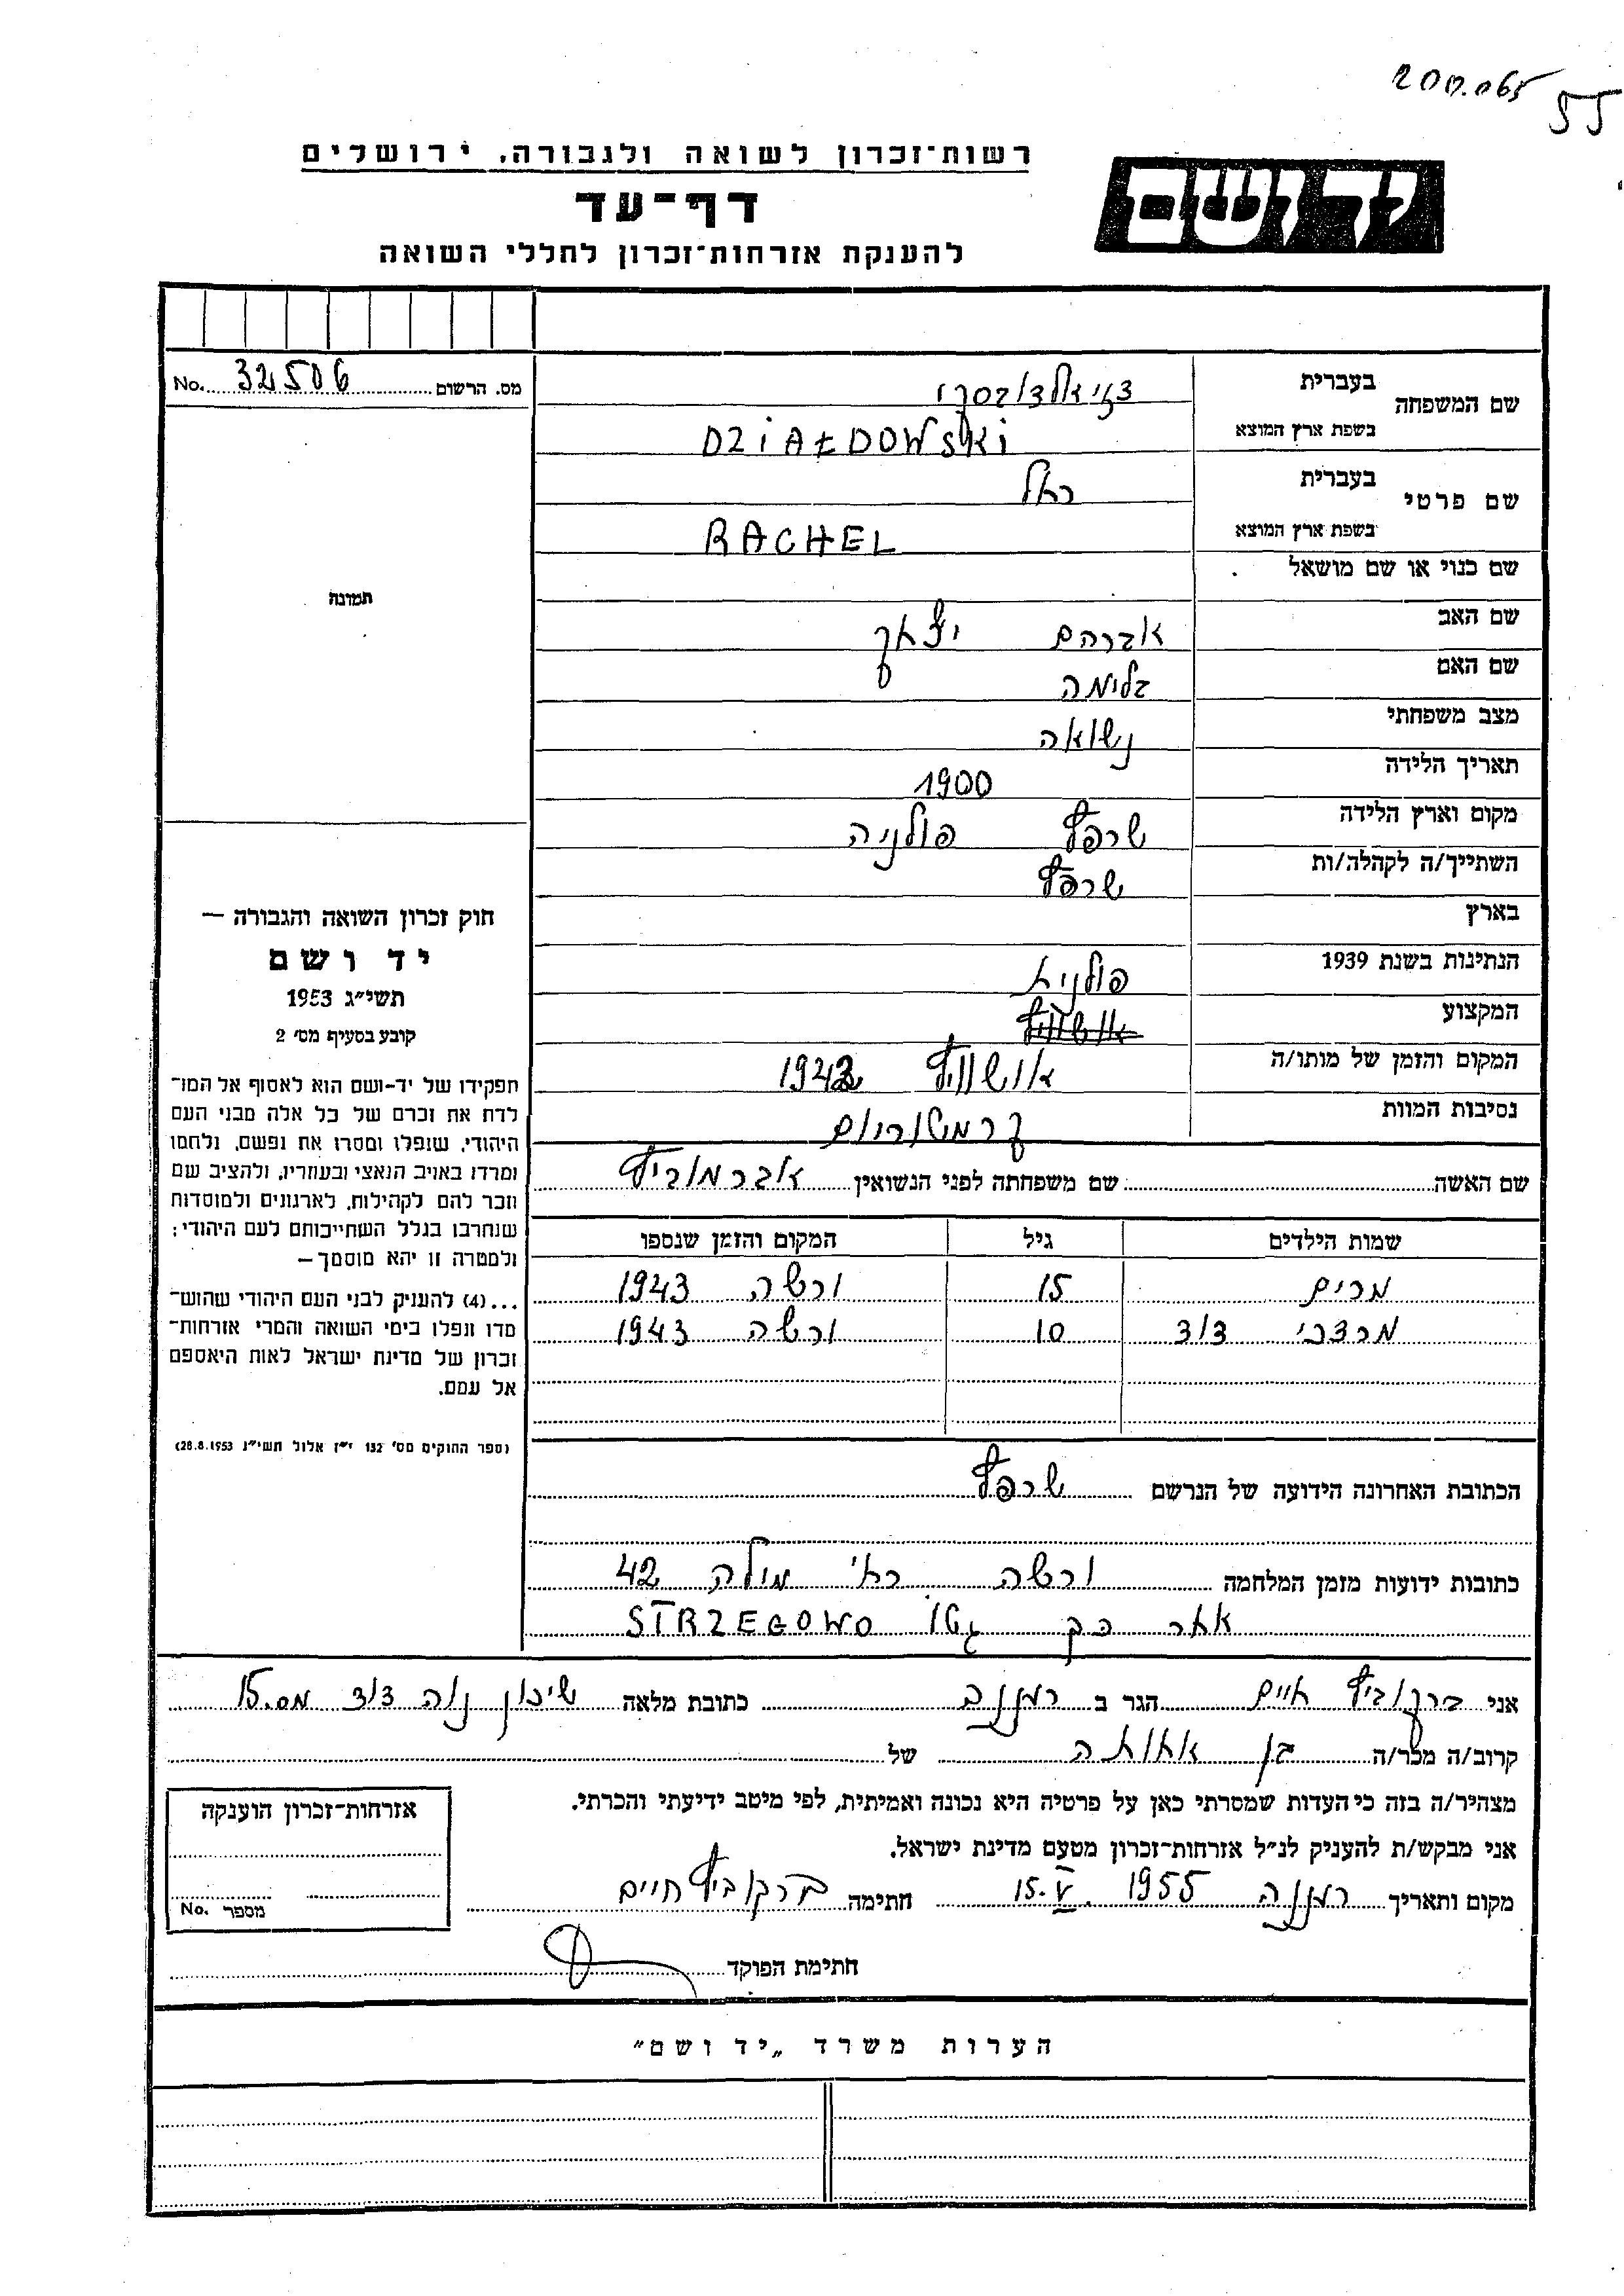 200.065 55
רשות־זכרון לשואה ולגבורה, ירושלים
יד ושם
דף־עד
להענקת אזרחות־זכרון לחללי השואה
מס. הרשום 32506 No.
שם המשפחה
בעברית דזיאלדובסקי
בשפת ארץ המוצא DZIAŁDOWSKI
שם פרטי
בעברית רחל
בשפת ארץ המוצא RACHEL
שם כנוי או שם מושאל
שם האב אברהם יצחק
שם האם בלימה
מצב משפחתי נשואה
תאריך הלידה 1900
מקום וארץ הלידה שרפץ פולניה
השתייך/ה לקהלה/ות שרפץ
בארץ
הנתינות בשנת 1939 פולנית
המקצוע
המקום והזמן של מותו/ה אושוויץ 1942
נסיבות המוות קרמטוריום
שם האשה שם משפחתה לפני הנשואין אברמוביץ
שמות הילדים גיל המקום והזמן שנספו
מרים 15 ורשה 1943
מרדכי דוד 10 ורשה 1943
הכתובת האחרונה הידועה של הנרשם שרפץ
כתובות ידועות מזמן המלחמה ורשה רח' מילה 42
אחר כך גטו STRZEGOWO
תמונה
חוק זכרון השואה והגבורה —
יד ושם
תשי״ג 1953
קובע בסעיף מס׳ 2
תפקידו של יד־ושם הוא לאסוף אל המו־
לדת את זכרם של כל אלה מבני העם
היהודי, שנפלו ומסרו את נפשם, נלחמו
ומרדו באויב הנאצי ובעוזריו, ולהציב שם
וזכר להם לקהילות, לארגונים ולמוסדות
שנחרבו בגלל השתייכותם לעם היהודי;
ולמטרה זו יהא מוסמך —
...(4) להעניק לבני העם היהודי שהוש־
מדו ונפלו בימי השואה והמרי אזרחות־
זכרון של מדינת ישראל לאות היאספם
אל עמם.
(ספר החוקים מס׳ 132 י״ז אלול תשי״ג 28.8.1953)
אני ברקוביץ חיים הגר ב רעננה כתובת מלאה שיכון נוה דוד מס. 15
קרוב/ה מכר/ה בן אחותה של
מצהיר/ה בזה כי העדות שמסרתי כאן על פרטיה היא נכונה ואמיתית, לפי מיטב ידיעתי והכרתי.
אני מבקש/ת להעניק לנ״ל אזרחות־זכרון מטעם מדינת ישראל.
מקום ותאריך רעננה 15.V.1955 חתימה ברקוביץ חיים
חתימת הפוקד
אזרחות־זכרון הוענקה
מספר No.
הערות משרד „יד ושם״